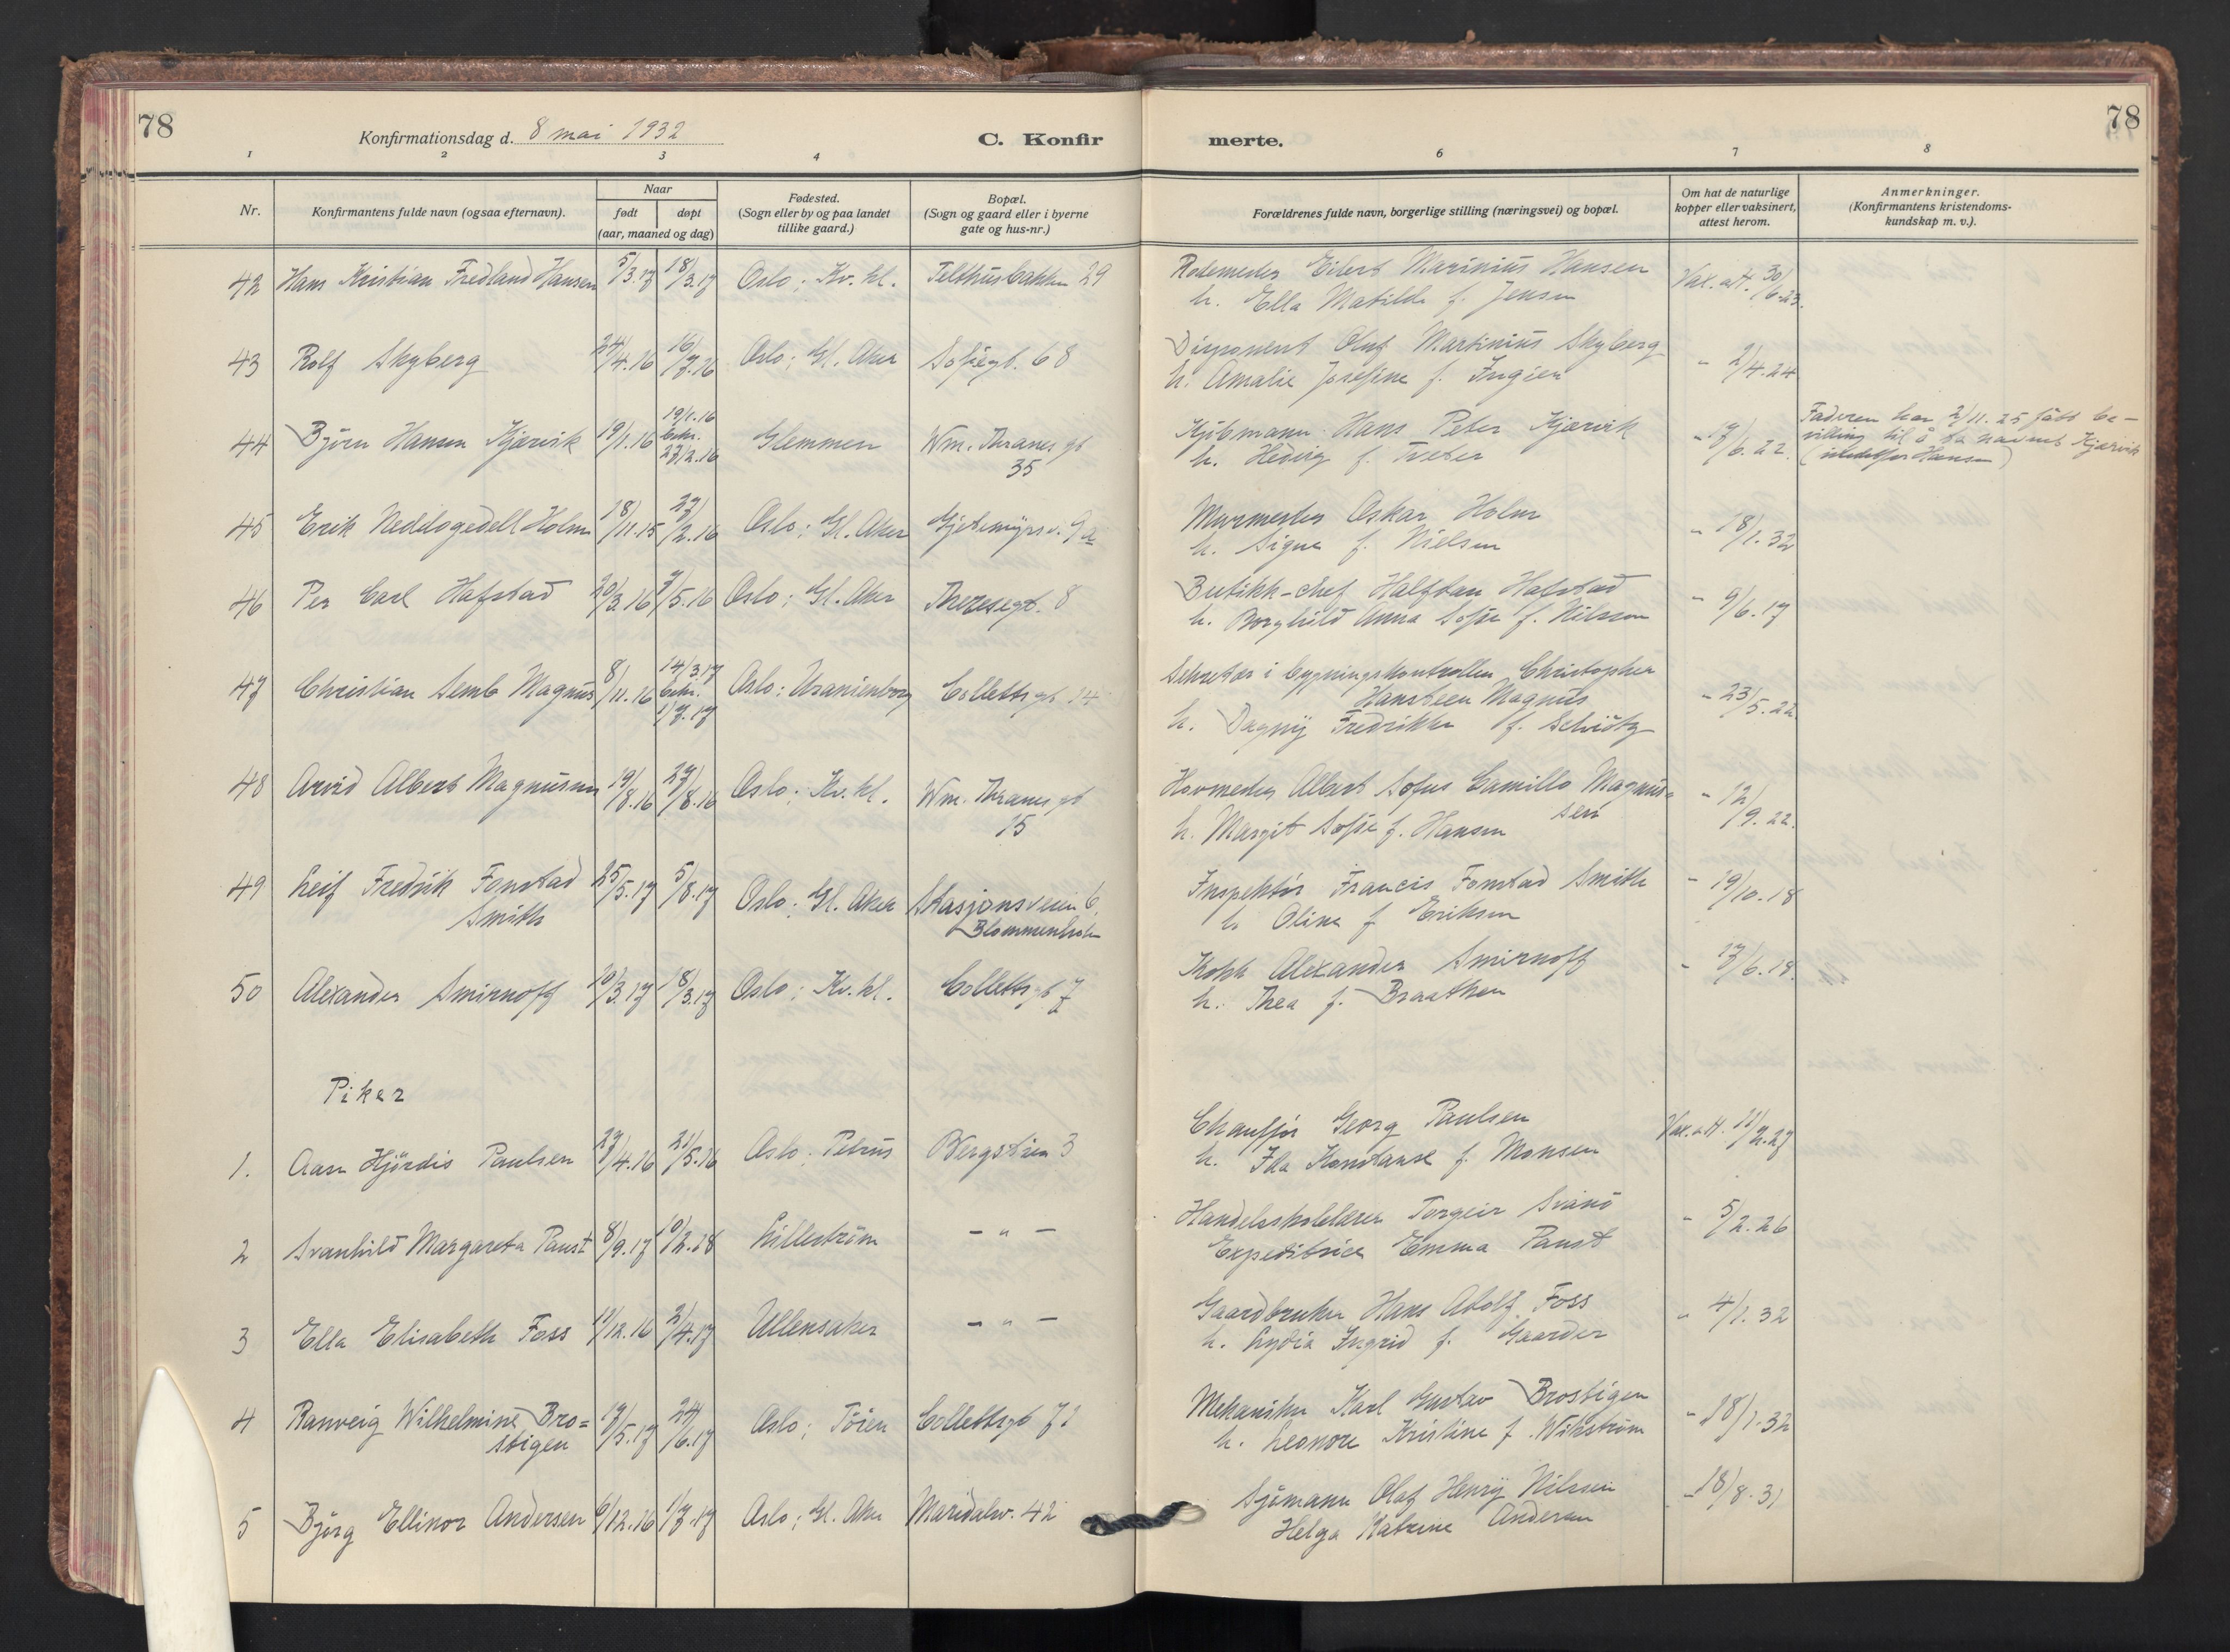 78
Konfirmationsdag d. 8 mai 1932
C. Konfir
merte.
78
1 2 3 4 6 7 8
Nr.
Konfirmantens fulde navn (ogsaa efternavn).
Naar
født døpt
(aar, maaned og dag)
Fødested.
(Sogn eller by og paa landet
tillike gaard.)
Bopæl.
(Sogn og gaard eller i byerne
gate og hus-nr.)
Forældrenes fulde navn, borgerlige stilling (næringsvei) og bopæl.
Om hat de naturlige
kopper eller vaksinert,
attest herom.
Anmerkninger.
(Konfirmantens kristendoms-
kundskap m. v.).
42 Hans Kristian Fredland Hansen 5/3.17 18/3.17 Oslo; Kv. kl. Telthusbakken 29 Rodemester Eilert Marinius Hansen Vax. att. 30/6.23.
h. Ella Matilde f. Jensen
43 Rolf Skyberg 24/4.16 16/7.16 Oslo; Gl. Aker Sofiegt. 68 Disponent Oluf Martinius Skyberg - 2/4.24
h. Amalie Josefine f. Ingier
44 Bjørn Hansen Kjærvik 19/1.16 19/1.16 bekr. 27/2.16 Glemmen Wm. Thranes gt 35 Kjøbmann Hans Peter Kjærvik - 17/6.22.
h. Hedvig f. Tveter
Faderen har 2/11.25 fått be-
villing til å ta navnet Kjærvik
(istedetfor Hansen)
45 Erik Holm 18/11.15 27/2.16 Oslo; Gl. Aker Gjetemyrsv. 9a Murmester Oskar Holm - 18/1.32
h. Signe f. Nielsen
46 Per Carl Hafstad 20/3.16 7/5.16 Oslo; Gl. Aker Theresegt. 8 Butikk-chef Halfdan Hafstad - 9/6.17
h. Borghild Anna Sofie f. Nilsson
47 Christian Semb Magnus 8/11.16 14/3.17 bekr. 1/7.17 Oslo; Uranienborg Collettsgt 14 Sekretær i bygningskontrollen Christopher
Hansteen Magnus - 23/5.22
h. Dagny Fredrikke f. Schiøtz
48 Arvid Albert Magnussen 19/8.16 27/8.16 Oslo; Kv. kl. Wm. Thranes gt 15 Hovmester Albert Sofus Camillo Magnus=
sen - 12/9.22.
h. Margit Sofie f. Hansen
49 Leif Fredrik Fonstad
Smith 25/5.17 5/8.17 Oslo; Gl. Aker Stasjonsveien 6,
Blommenholm Inspektør Francis Fonstad Smith - 19/10.18
h. Oline f Eriksen
50 Alexander Smirnoff 10/3.17 18/3.17 Oslo; Kv. kl. Collettsgt 7 Kokk Alexander Smirnoff - 17/6.19.
h. Thea f. Braathen
Piker
1. Aase Hjørdis Paulsen 27/4.16 21/5.16 Oslo; Petrus Bergstien 3 Chauffør Georg Paulsen Vax. att. 11/2.27
h. Ida Konstanse f. Monsen
2 Svanhild Margareta Paust 8/9.17 10/2.18 Lillestrøm - " - Handelsskolelærer Torgeir Svanø - 5/2.26
Expeditrice Emma Paust
3 Ella Elisabeth Foss 11/12.16 2/4.17 Ullensaker - " - Gaardbruker Hans Adolf Foss " 4/1.32
h. Lydia Ingrid f. Gaarder
4 Ranveig Wilhelmine Bro=
stigen 17/5.17 24/6.17 Oslo; Tøien Collettsgt 71 Mekaniker Karl Gustav Brostigen - 18/1.32
h. Leonore Kristine f. Wikstrøm
5 Bjørg Ellinor Andersen 6/12.16 1/7.17 Oslo; Gl. Aker Maridalsv. 42 Sjømann Olaf Henry Nilssen - 18/8.31
Helga Katrine Andersen